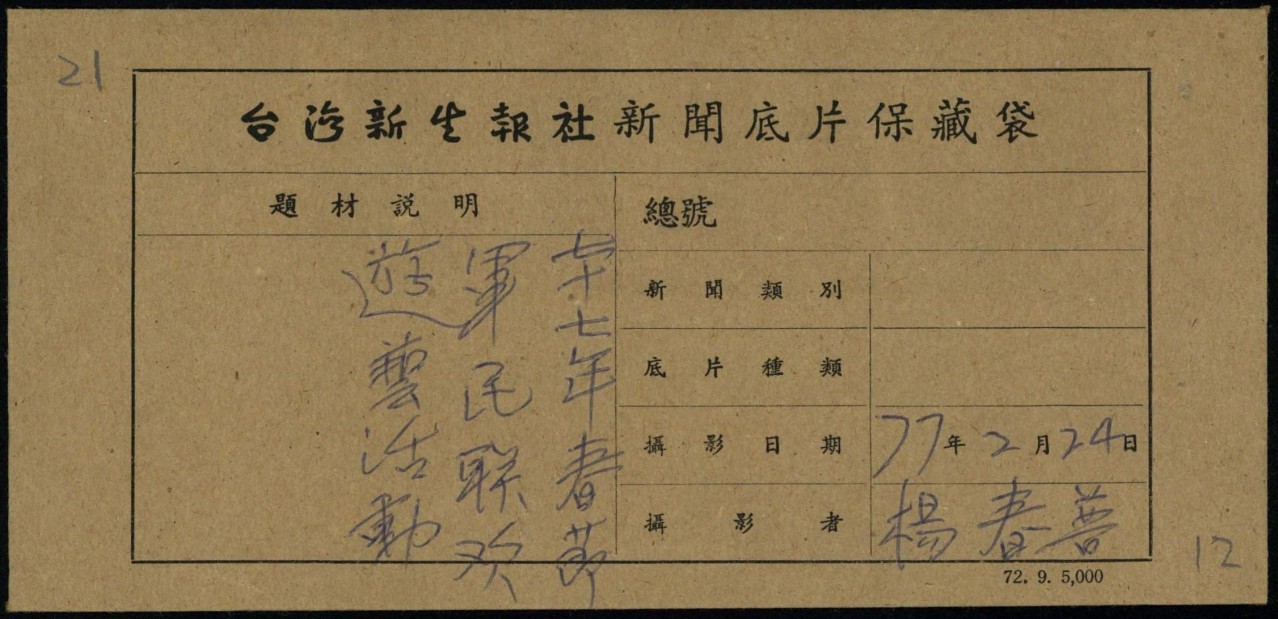 21
台灣新生報社新聞底片保藏袋
題材說明
七十七年春節
軍民聯欢
遊藝活動
總號
新聞類別
底片種類
攝影日期
77年2月24日
攝影者
楊春普
12
72. 9. 5,000